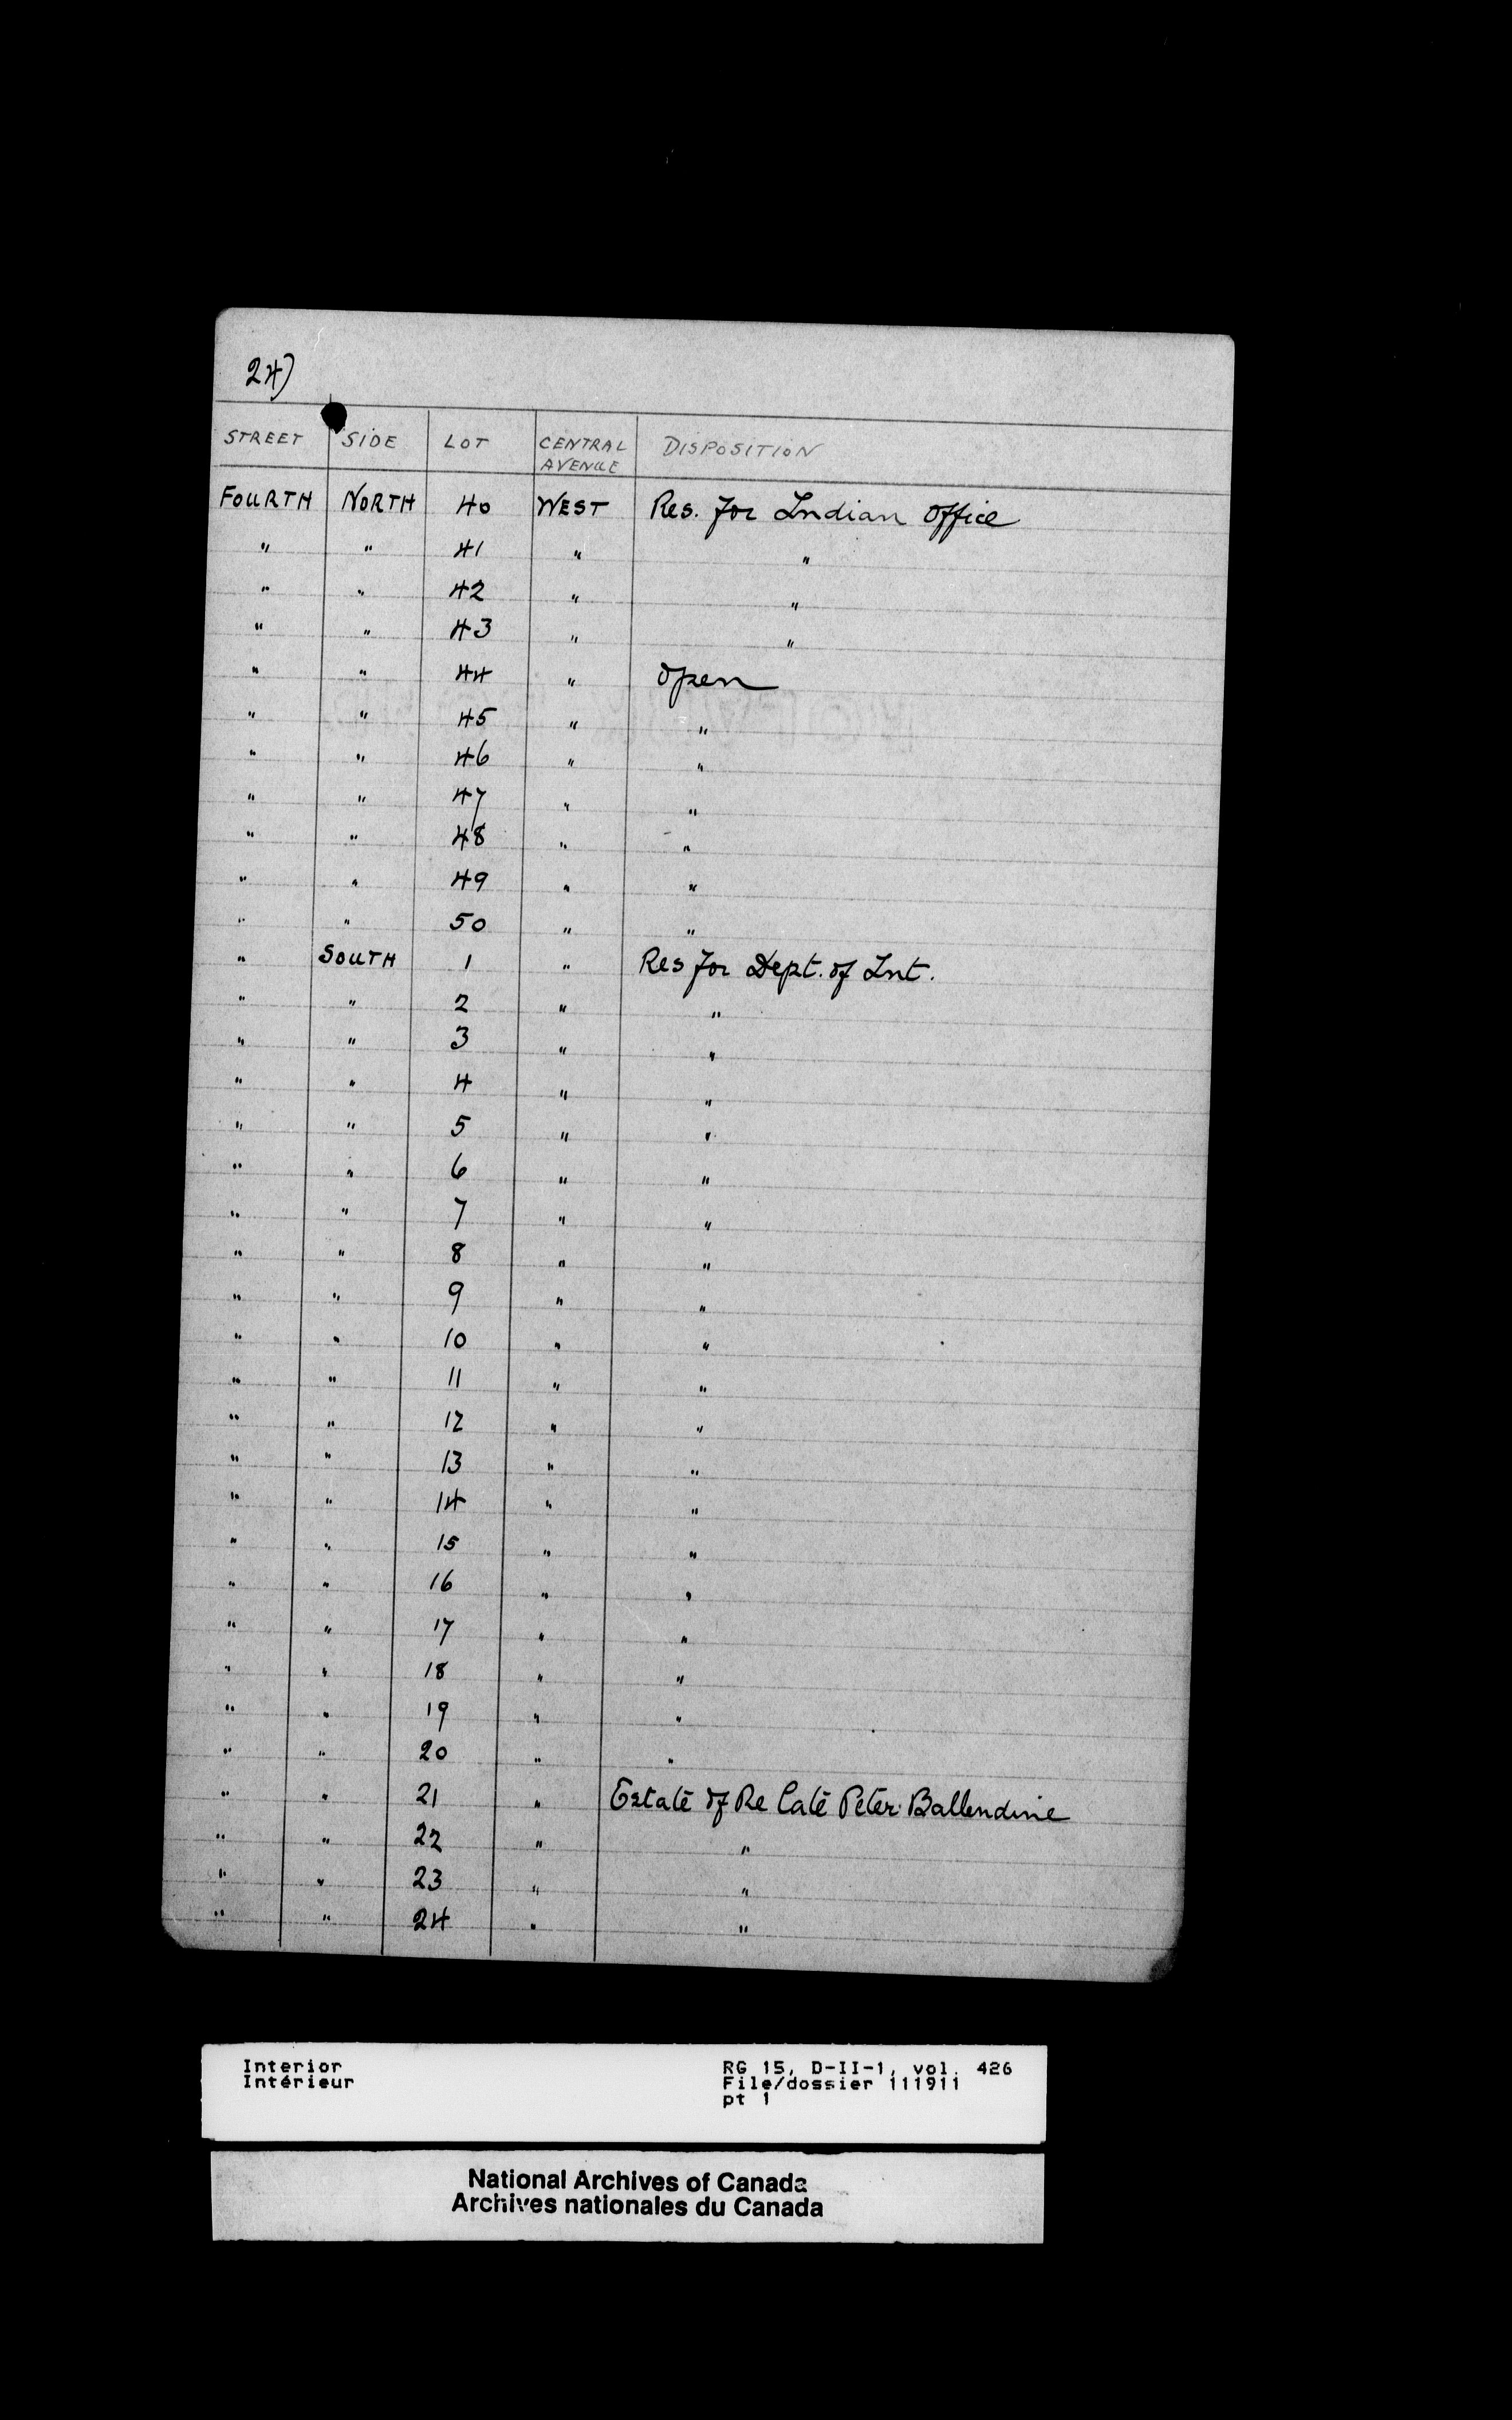 24)
STREET SIDE LOT CENTRAL AVENUE DISPOSITION
FOURTH NORTH 40 WEST Res. for Indian Office
" " 41 " "
" " 42 " "
" " 43 " "
" " 44 " Open
" " 45 " "
" " 46 " "
" " 47 " "
" " 48 " "
" " 49 " "
" " 50 " "
" SOUTH 1 " Res for Dept. of Int.
" " 2 " "
" " 3 " "
" " 4 " "
" " 5 " "
" " 6 " "
" " 7 " "
" " 8 " "
" " 9 " "
" " 10 " "
" " 11 " "
" " 12 " "
" " 13 " "
" " 14 " "
" " 15 " "
" " 16 " "
" " 17 " "
" " 18 " "
" " 19 " "
" " 20 " "
" " 21 " Estate of Re late Peter Ballendine
" " 22 " "
" " 23 " "
" " 24 " "
Interior RG 15, D-II-1, vol. 426
Intérieur File/dossier 111911
pt 1
National Archives of Canada
Archives nationales du Canada